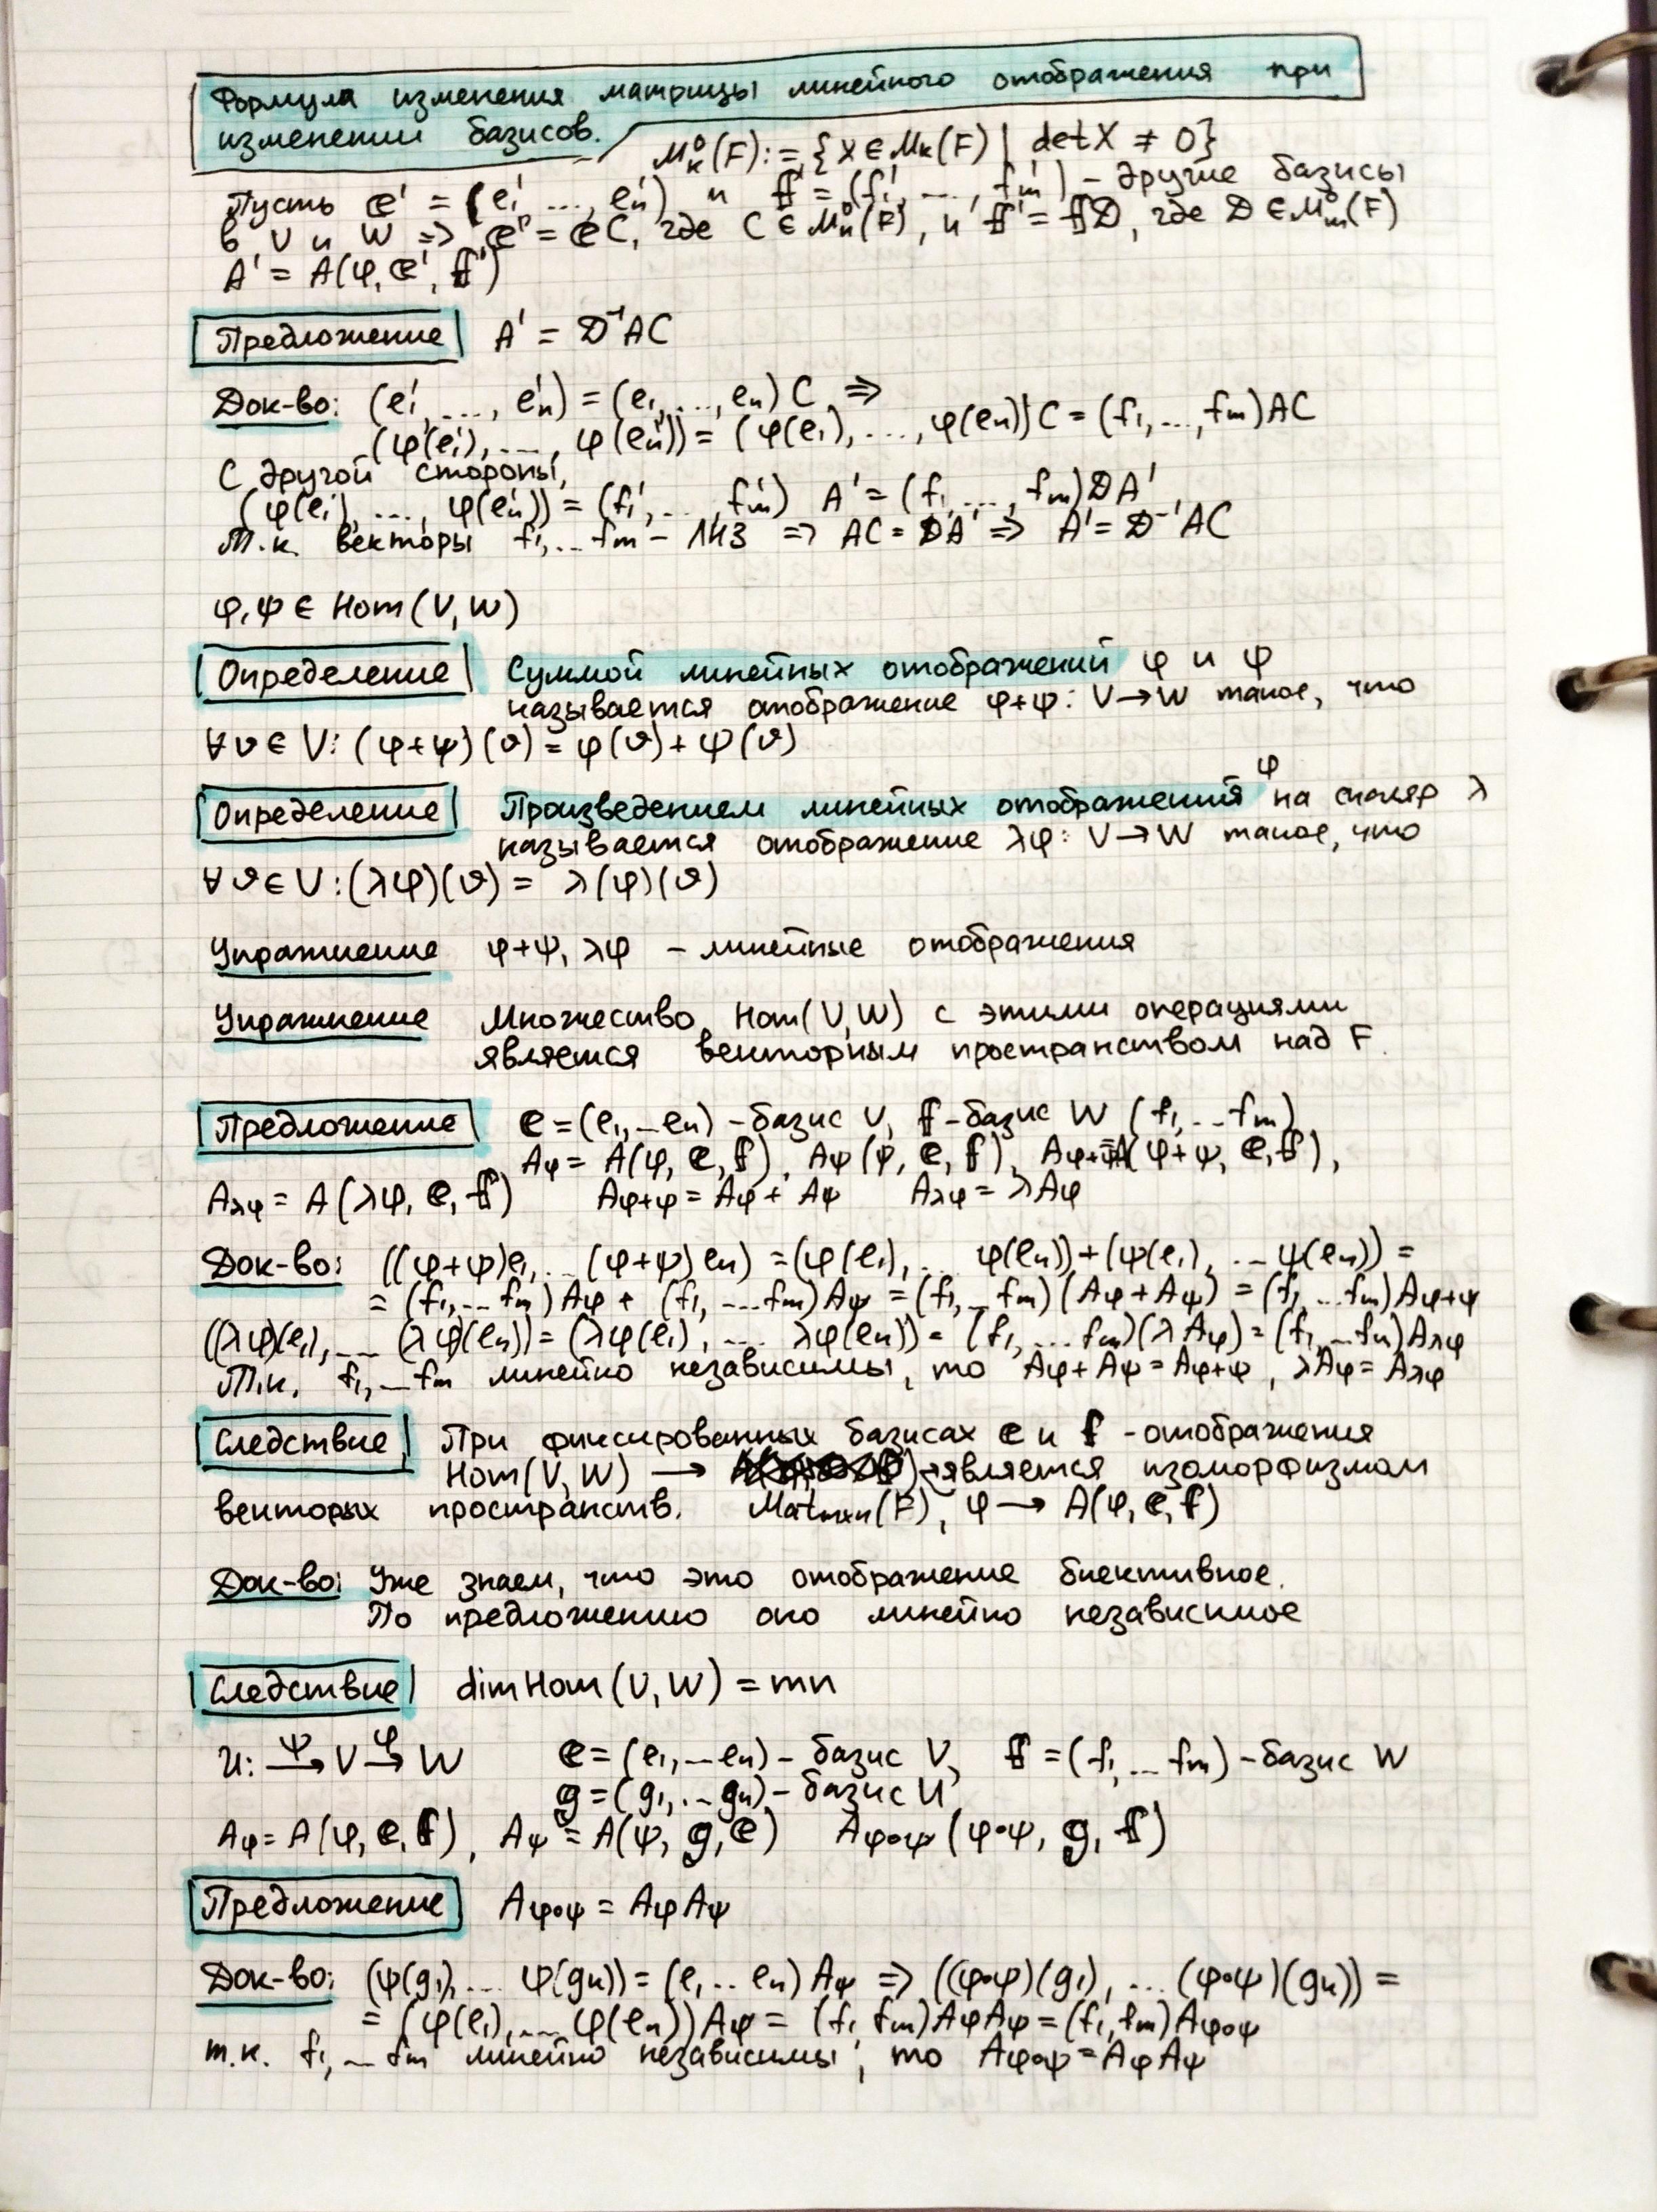 Формула изменения матрицы линейного отображения при
изменении базисов.
M⁰ₖ(F) := {X ∈ Mₖ(F) | det X ≠ 0}
Пусть 𝕖' = (e₁' ..., eₙ') и 𝕗' = (f₁', ..., fₘ') – другие базисы
в V и W => 𝕖' = 𝕖C, где C ∈ M⁰ₙ(F), и 𝕗' = 𝕗D, где D ∈ M⁰ₘ(F)
A' = A(φ, 𝕖', 𝕗')
Предложение A' = D⁻¹AC
Док-во: (e₁', ..., eₙ') = (e₁, ..., eₙ)C ⇒
(φ(e₁'), ..., φ(eₙ')) = (φ(e₁), ..., φ(eₙ))C = (f₁, ..., fₘ)AC
С другой стороны,
(φ(e₁'), ..., φ(eₙ')) = (f₁', ..., fₘ') A' = (f₁, ..., fₘ)DA'
Т.к. векторы f₁, .. fₘ – ЛНЗ => AC = DA' => A' = D⁻¹AC
φ, ψ ∈ Hom(V, W)
Определение Суммой линейных отображений φ и φ
называется отображение φ+φ: V→W такое, что
∀v ∈ V: (φ+ψ)(v) = φ(v) + ψ(v)
Определение Произведением линейных отображений φ на скаляр λ
называется отображение λφ: V→W такое, что
∀v ∈ V: (λφ)(v) = λ(φ)(v)
Упражнение φ+ψ, λφ – линейные отображения
Упражнение Множество Hom(V, W) с этими операциями
является векторным пространством над F.
Предложение 𝕖 = (e₁, .. eₙ) – базис V, 𝕗 – базис W (f₁, .. fₘ)
A_φ = A(φ, 𝕖, 𝕗), A_ψ (ψ, 𝕖, 𝕗), A_φ+ψ = A(φ+ψ, 𝕖, 𝕗),
A_λφ = A(λφ, 𝕖, 𝕗) A_φ+ψ = A_φ + A_ψ A_λφ = λA_φ
Док-во: ((φ+ψ)e₁, .. (φ+ψ)eₙ) = (φ(e₁), .. φ(eₙ)) + (ψ(e₁), .. ψ(eₙ)) =
= (f₁, ... fₘ)A_φ + (f₁, ... fₘ)A_ψ = (f₁, .. fₘ)(A_φ + A_ψ) = (f₁, .. fₘ)A_φ+ψ
((λφ)(e₁), ... (λφ)(eₙ)) = (λφ(e₁), ... λφ(eₙ)) = (f₁, ... fₘ)(λA_φ) = (f₁, .. fₘ)A_λφ
Т.к. f₁, .. fₘ линейно независимы, то A_φ + A_ψ = A_φ+ψ, λA_φ = A_λφ
Следствие При фиксированных базисах 𝕖 и 𝕗 – отображения
Hom(V, W) → является изоморфизмом
векторых пространств. Matₘₓₙ(F), φ → A(φ, 𝕖, 𝕗)
Док-во: Уже знаем, что это отображение биективное.
По предложению оно линейно независимое
Следствие dim Hom(V, W) = mn
U: ψ→ V φ→ W 𝕖 = (e₁, .. eₙ) – базис V, 𝕗 = (f₁, .. fₘ) – базис W
g = (g₁, .. gₙ) – базис U
A_φ = A(φ, 𝕖, 𝕗), A_ψ = A(ψ, g, 𝕖) A_φ∘ψ (φ∘ψ, g, 𝕗)
Предложение A_φ∘ψ = A_φ A_ψ
Док-во: (ψ(g₁), ... ψ(gₙ)) = (e₁ .. eₙ)A_ψ => ((φ∘ψ)(g₁), ... (φ∘ψ)(gₙ)) =
= (φ(e₁), ... φ(eₙ))A_ψ = (f₁ fₘ)A_φ A_ψ = (f₁, fₘ)A_φ∘ψ
т.к. f₁, .. fₘ линейно независимы, то A_φ∘ψ = A_φ A_ψ